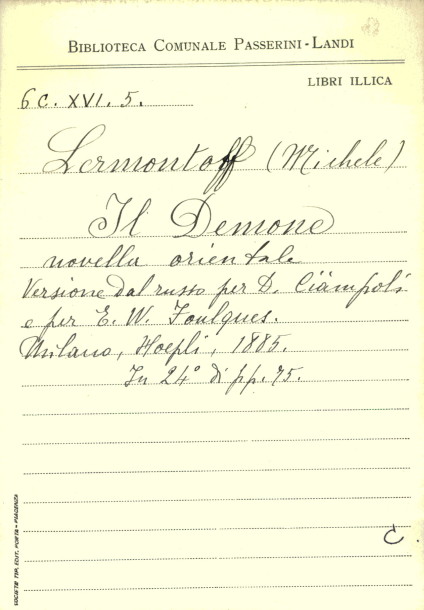 BIBLIOTECA COMUNALE PASSERINI-LANDI
LIBRI ILLICA
6 C. XVI. 5.
Lermontoff (Michele)
Il Demone
novella orientale
Versione dal russo per D. Ciàmpoli
e per E. W. Foulques.
Milano, Hoepli, 1885.
In 24° di pp. 75.
C.
SOCIETÀ TIP. EDIT. PORTA - PIACENZA